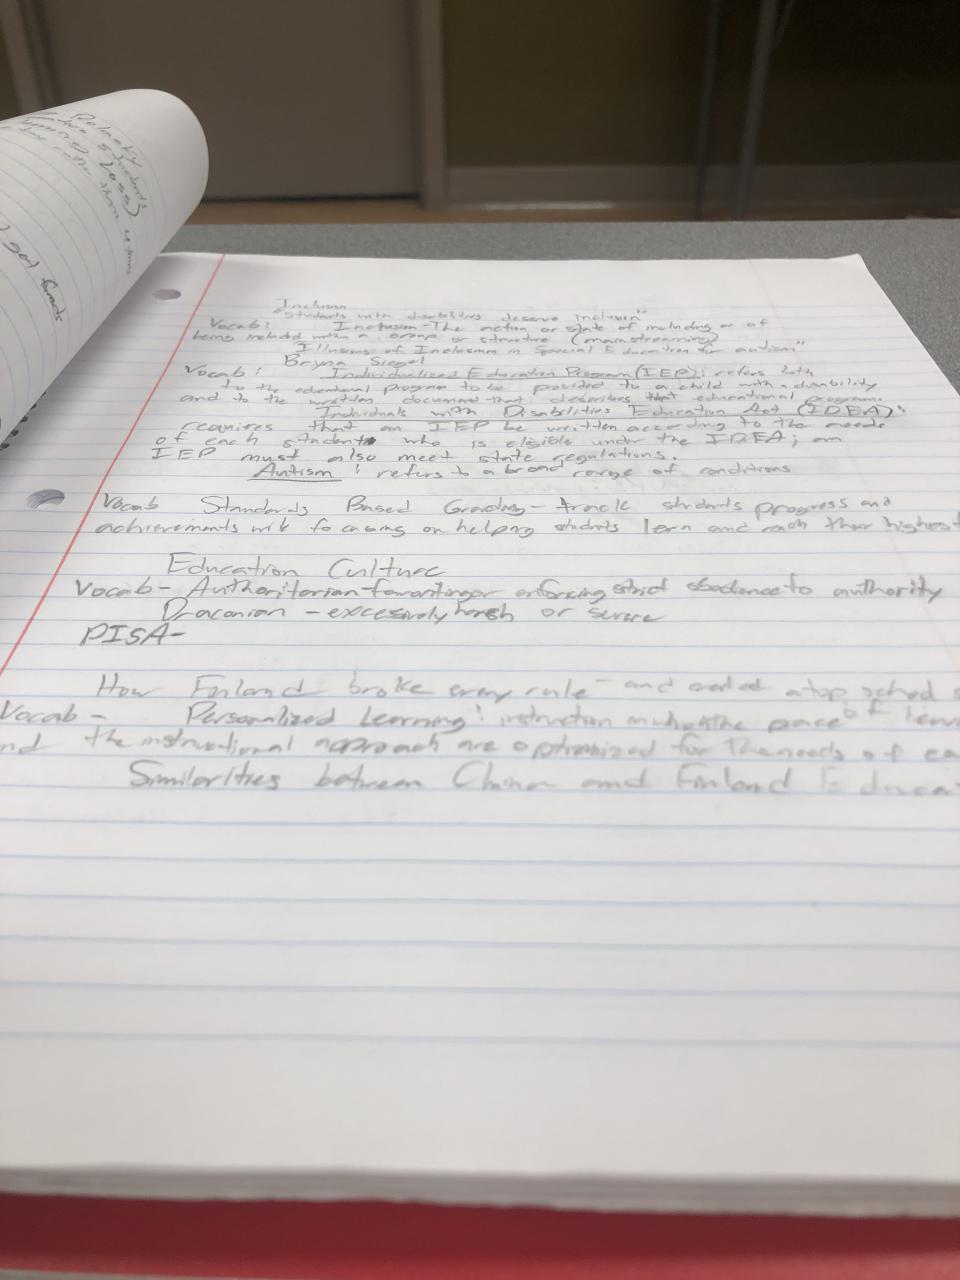 Rolnecky
Inclusion
"Students with disabilities deserve inclusion"
Vocab: Inclusion - The action or state of including or of
being included within a group or structure (mainstreaming)
Illusions of Inclusion in Special Education for autism"
Bryna Siegel
Vocab: Individualized Education Program (IEP): refers both
to the educational program to be provided to a child with a disability
and to the written document that describes that educational program.
Individuals with Disabilities Education Act (IDEA):
requires that an IEP be written according to the needs
of each student who is eligible under the IDEA; an
IEP must also meet state regulations.
Autism: refers to a broad range of conditions
Vocab Standards Based Grading - track students progress and
achievements focusing on helping students learn and reach their highest
Education Culture
Vocab - Authoritarian - favoring or enforcing strict obedience to authority
Draconian - excessively harsh or severe
PISA-
How Finland broke every rule - and created a top school
Vocab - Personalized Learning: instruction in which the pace of
the instructional approach are optimized for the needs of
Similarities between China and Finland